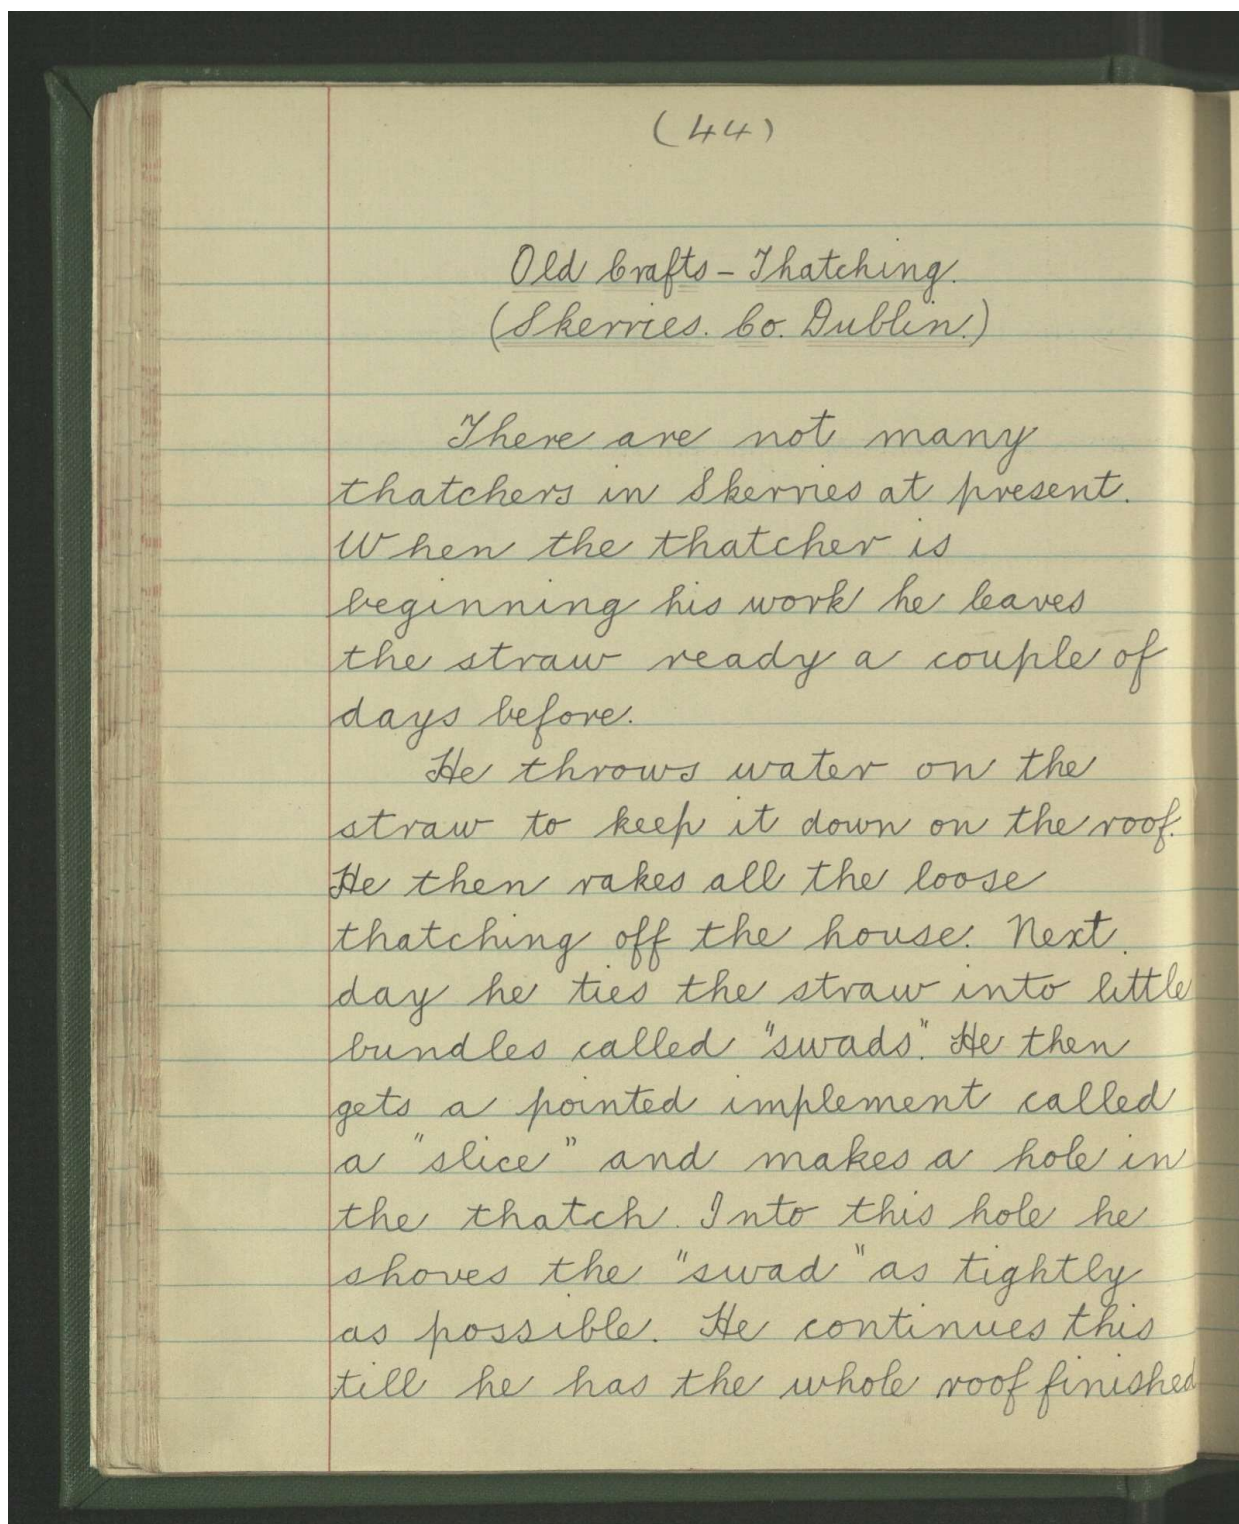 (44)
Old Crafts - Thatching.
(Skerries. Co. Dublin.)
There are not many
thatchers in Skerries at present.
When the thatcher is
beginning his work he leaves
the straw ready a couple of
days before.
He throws water on the
straw to keep it down on the roof.
He then rakes all the loose
thatching off the house. Next
day he ties the straw into little
bundles called "swads". He then
gets a pointed implement called
a "slice" and makes a hole in
the thatch. Into this hole he
shoves the "swad" as tightly
as possible. He continues this
till he has the whole roof finished